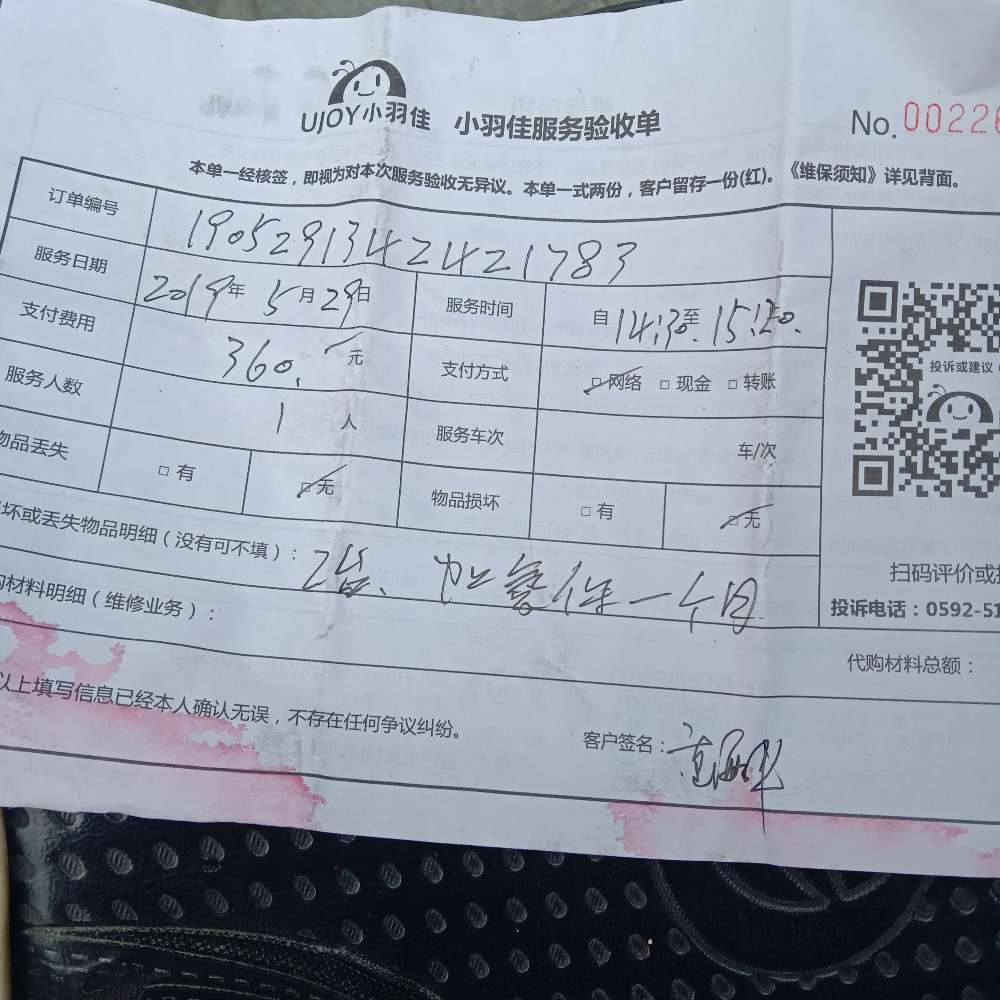 UJOY小羽佳 小羽佳服务验收单 No.00226
本单一经核签，即视为对本次服务验收无异议。本单一式两份，客户留存一份(红)。《维保须知》详见背面。
订单编号 19052913424217 83
服务日期 2019年5月29日 服务时间 自14:30至15:20.
支付费用 360.元 支付方式 □网络 □现金 □转账
服务人数 1人 服务车次 车/次
物品丢失 □有 □无 物品损坏 □有 □无
坏或丢失物品明细（没有可不填）：2台、加 保一个月
材料明细（维修业务）：
投诉或建议
扫码评价或
投诉电话：0592-51
代购材料总额：
以上填写信息已经本人确认无误，不存在任何争议纠纷。
客户签名：